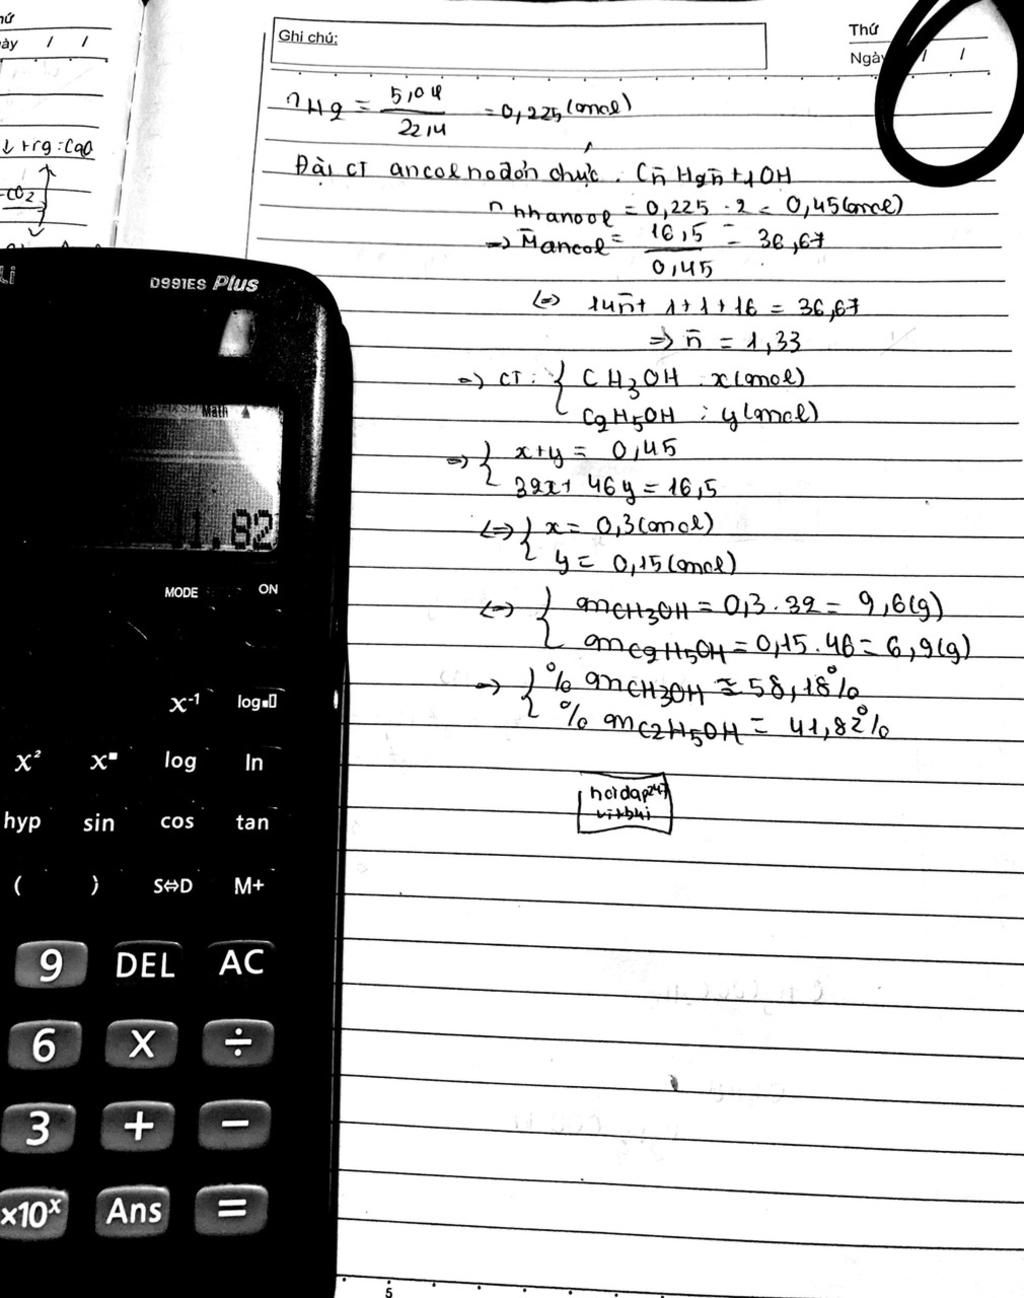 Ghi chú:
Thứ
Ngày / /
ứ
ày / /
↓ + rg : CaO
CO2
nH2 = 5,04 / 22,4 = 0,225 (mol)
Đặt CT ancol no đơn chức : Cn̄H2n̄+1OH
n hh ancol = 0,225 . 2 = 0,45 (mol)
=> M̄ ancol = 16,5 / 0,45 = 36,67
<=> 14n̄ + 1 + 1 + 16 = 36,67
=> n̄ = 1,33
=> CT : { CH3OH : x (mol)
C2H5OH : y (mol)
=> { x + y = 0,45
32x + 46y = 16,5
<=> { x = 0,3 (mol)
y = 0,15 (mol)
<=> { mCH3OH = 0,3 . 32 = 9,6 (g)
mC2H5OH = 0,15 . 46 = 6,9 (g)
=> { % mCH3OH ≈ 58,18%
% mC2H5OH = 41,82%
hoidap247
vitbui
D991ES Plus
Math ▲
41.82
MODE ON
x⁻¹ log▪▯
x² x▪ log ln
hyp sin cos tan
( ) S⇔D M+
9 DEL AC
6 X ÷
3 + −
×10ˣ Ans =
5